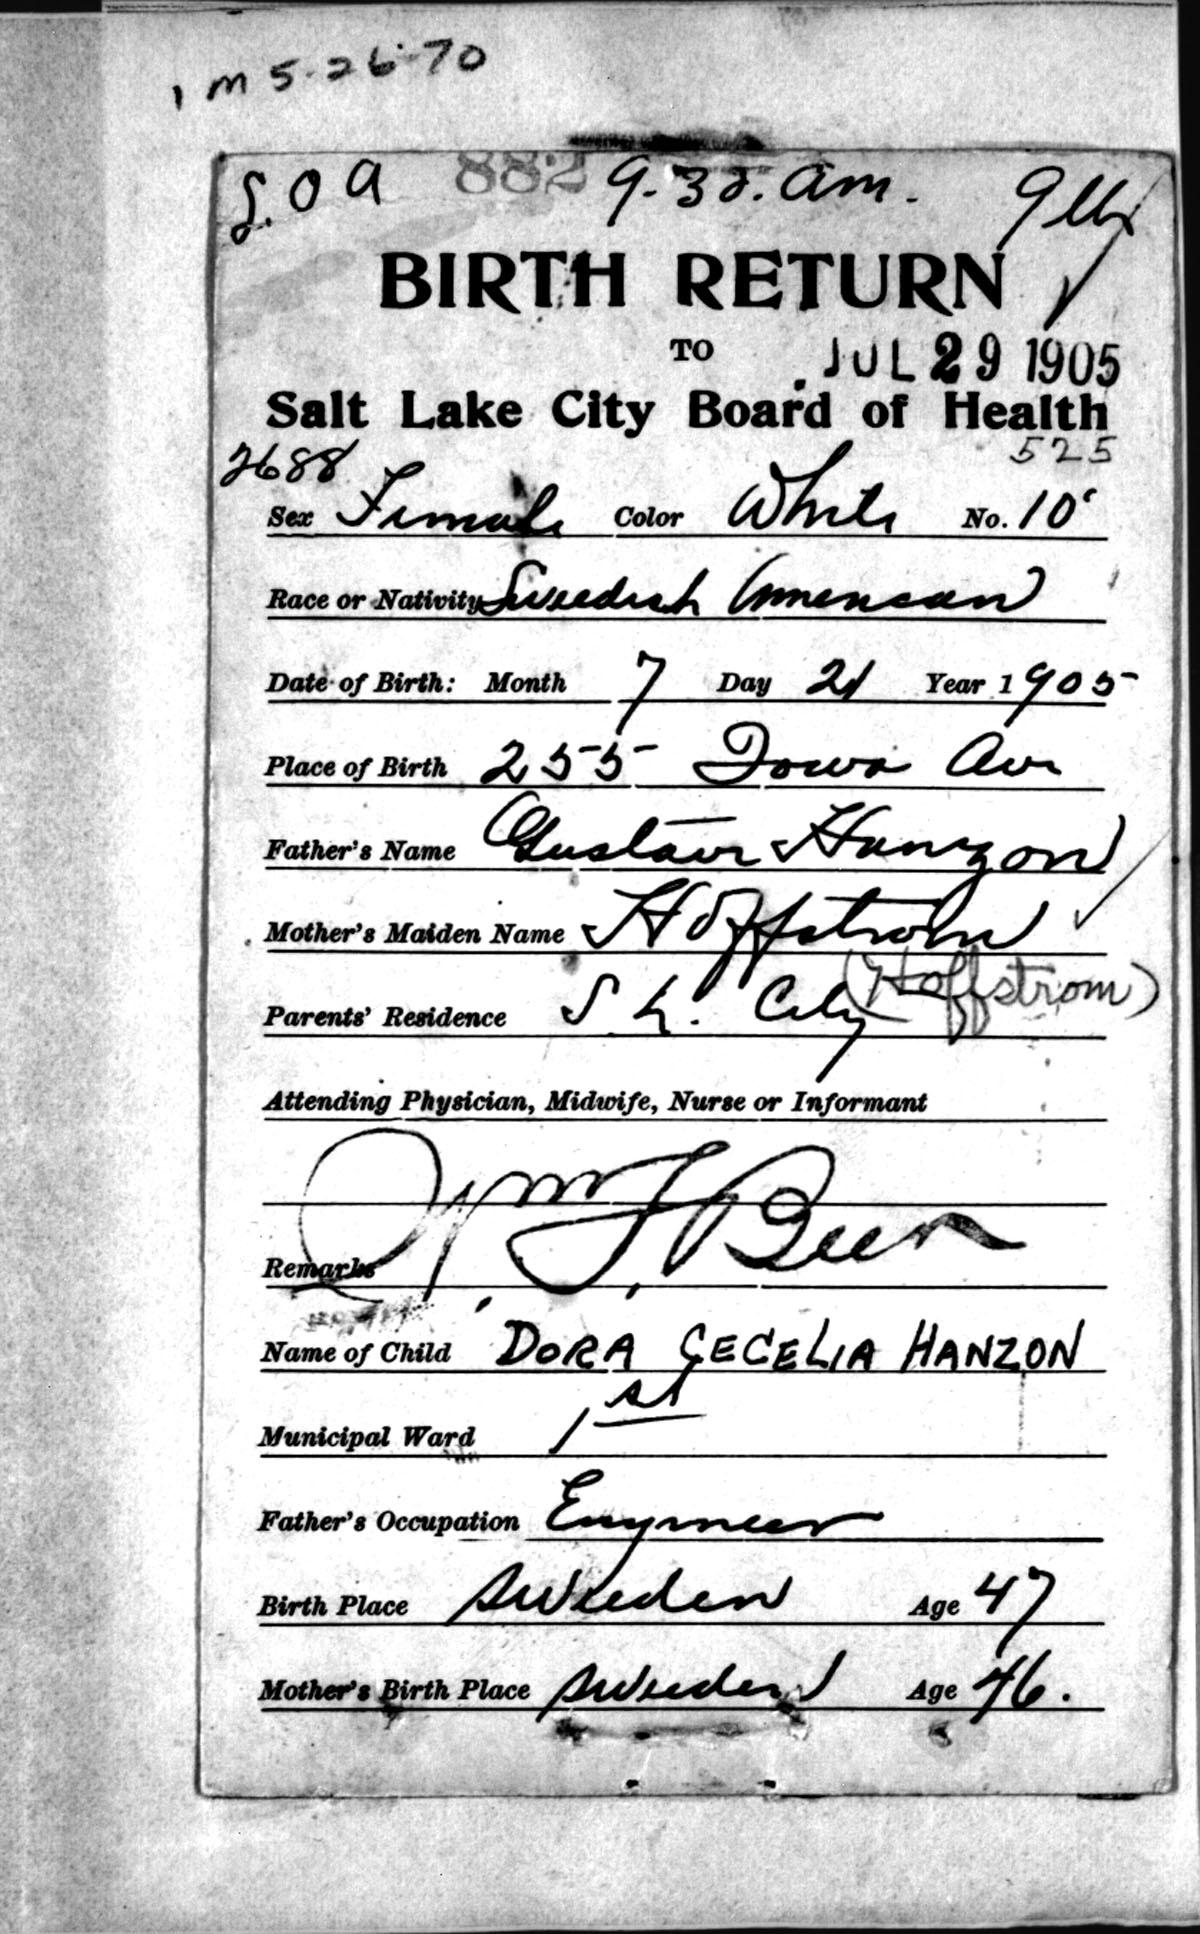 1 m 5-26-70
L.O.A 882 9-30. am. 9 lb
BIRTH RETURN
TO JUL 29 1905
Salt Lake City Board of Health
2688 525
Sex Female Color White No. 10
Race or Nativity Swedish American
Date of Birth: Month 7 Day 21 Year 1905
Place of Birth 255 Iowa Av
Father's Name Gustav Hanzon
Mother's Maiden Name Hoffstrom
(Hoffstrom)
Parents' Residence S L. City
Attending Physician, Midwife, Nurse or Informant
Wm F Beer
Remarks
Name of Child DORA CECELIA HANZON
Municipal Ward 1st
Father's Occupation Engineer
Birth Place Sweeden Age 47
Mother's Birth Place Sweeden Age 46.